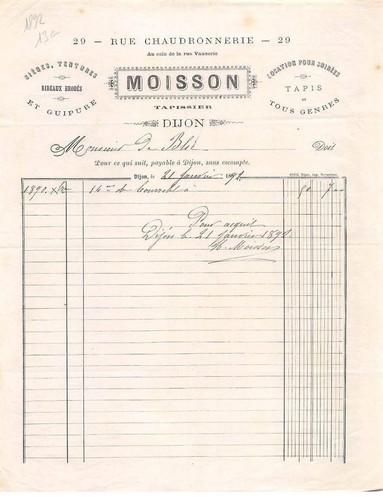 1892
29 - RUE CHAUDRONNERIE - 29
Au coin de la rue Vannerie
SIÈGES, TENTURES
RIDEAUX BRODÉS
ET GUIPURE
MOISSON
TAPISSIER
DIJON
LOCATION POUR SOIRÉES
TAPIS
EN
TOUS GENRES
Monsieur de Blic Doit
Pour ce qui suit, payable à Dijon, sans escompte.
Dijon, le 21 janvier 1892.
1890. à 50 7
Pour acquit
Dijon le 21 janvier 1892
H. Moisson